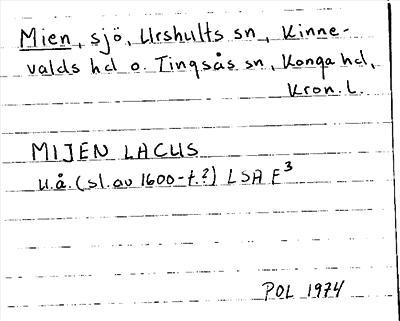 Mien, sjö, Urshults sn, Kinne-
valds hd o. Tingsås sn, Konga hd,
Kron. L.
MIJEN LACUS
u.å. (sl. av 1600-t.?) LSA E³
POL 1974